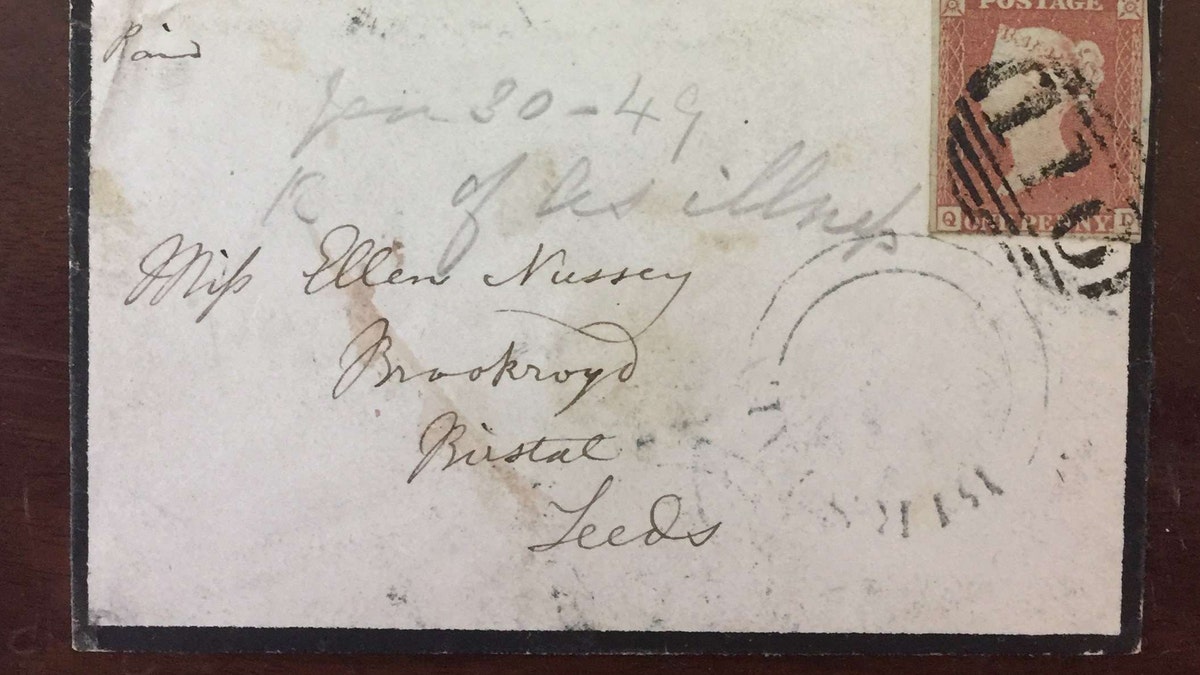 POSTAGE
Paid
Jan 30-49
K of As illness
Miss Ellen Nussey
Brookroyd
Birstal
Leeds
Q ONE PENNY D